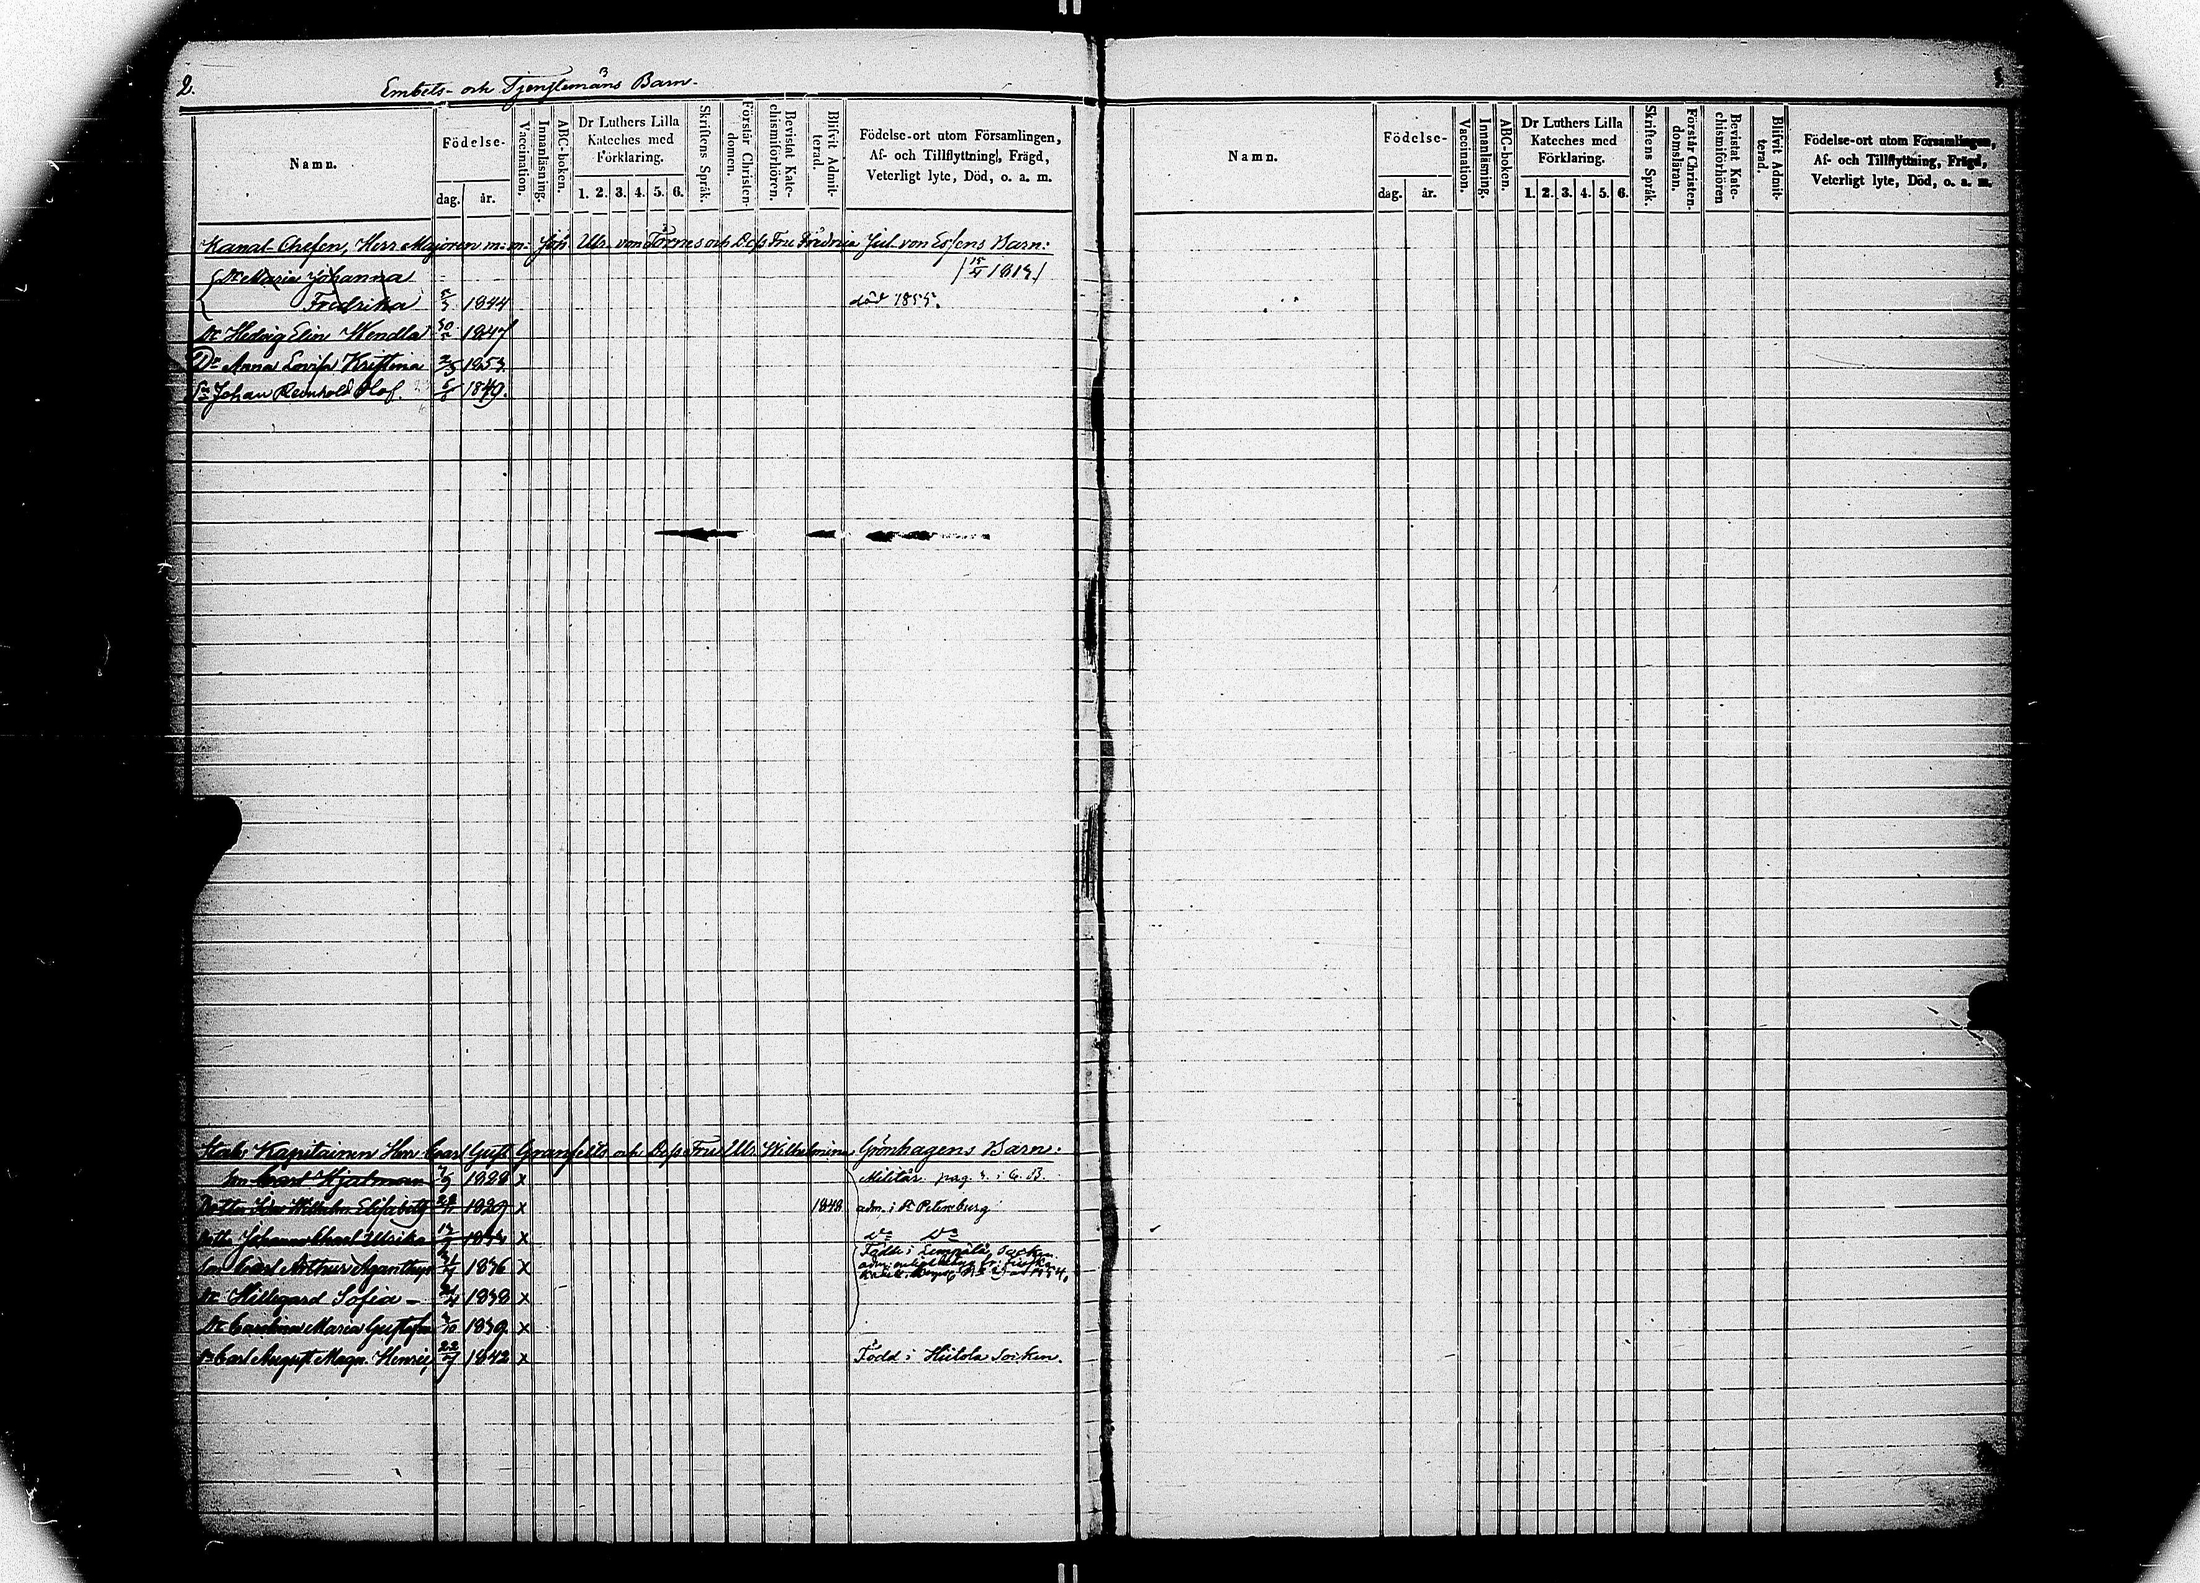 2.
Embets- och Tjenstemäns Barn.
Namn.
Födelse-
dag. år.
Vaccination.
Innanläsning.
ABC-boken.
Dr Luthers Lilla
Kateches med
Förklaring.
1. 2. 3. 4. 5. 6.
Skriftens Språk.
Förstår Christen-
domen.
Bevistat Kate-
chismiförhören.
Blifvit Admit-
terad.
Födelse-ort utom Församlingen,
Af- och Tillflyttningl, Frägd,
Veterligt lyte, Död, o. a. m.
Kanal-Chefen, Herr Majoren m: m: Joh. Ulr. von Törnes och Dess Fru Fredrica Jul. von Essens Barn:
Dr Maria Johanna
Fredrika 1844 död 1855.
Dr Hedvig Elin Wendla 1847
Dr Anna Lovisa Kristina 1853.
Sn Johan Reinhold Olof. 1849.
Stabs Kapitainen Herr Carl Gust. Granfelts och Dess Fru Ulr. Wilhelmina Grönhagens Barn:
Son Carl Hjalmar 1828 x Militär pag. i C.B.
Dotter Wilhelm. Elisabeth 1829 x 1848 adm. i St Petersburg
Dotter Johanna Charl. Ulrika x do do
Son Carl Arthur Aganthus 1836 x Född i Lempälä Socken
Dr Hildegard Sofia - 1838 x
Dr Carolina Maria Gustafva 1839. x
Sn Carl August Magn. Henric 22/7 1842 x Född i Hiitola Socken.
Namn.
Födelse-
dag. år.
Vaccination.
Innanläsning.
ABC-boken.
Dr Luthers Lilla
Kateches med
Förklaring.
1. 2. 3. 4. 5. 6.
Skriftens Språk.
Förstår Christen-
domsläran.
Bevistat Kate-
chismiförhören
Blifvit Admit-
terad.
Födelse-ort utom Församlingen,
Af- och Tillflyttning, Frägd,
Veterligt lyte, Död, o. a. m.